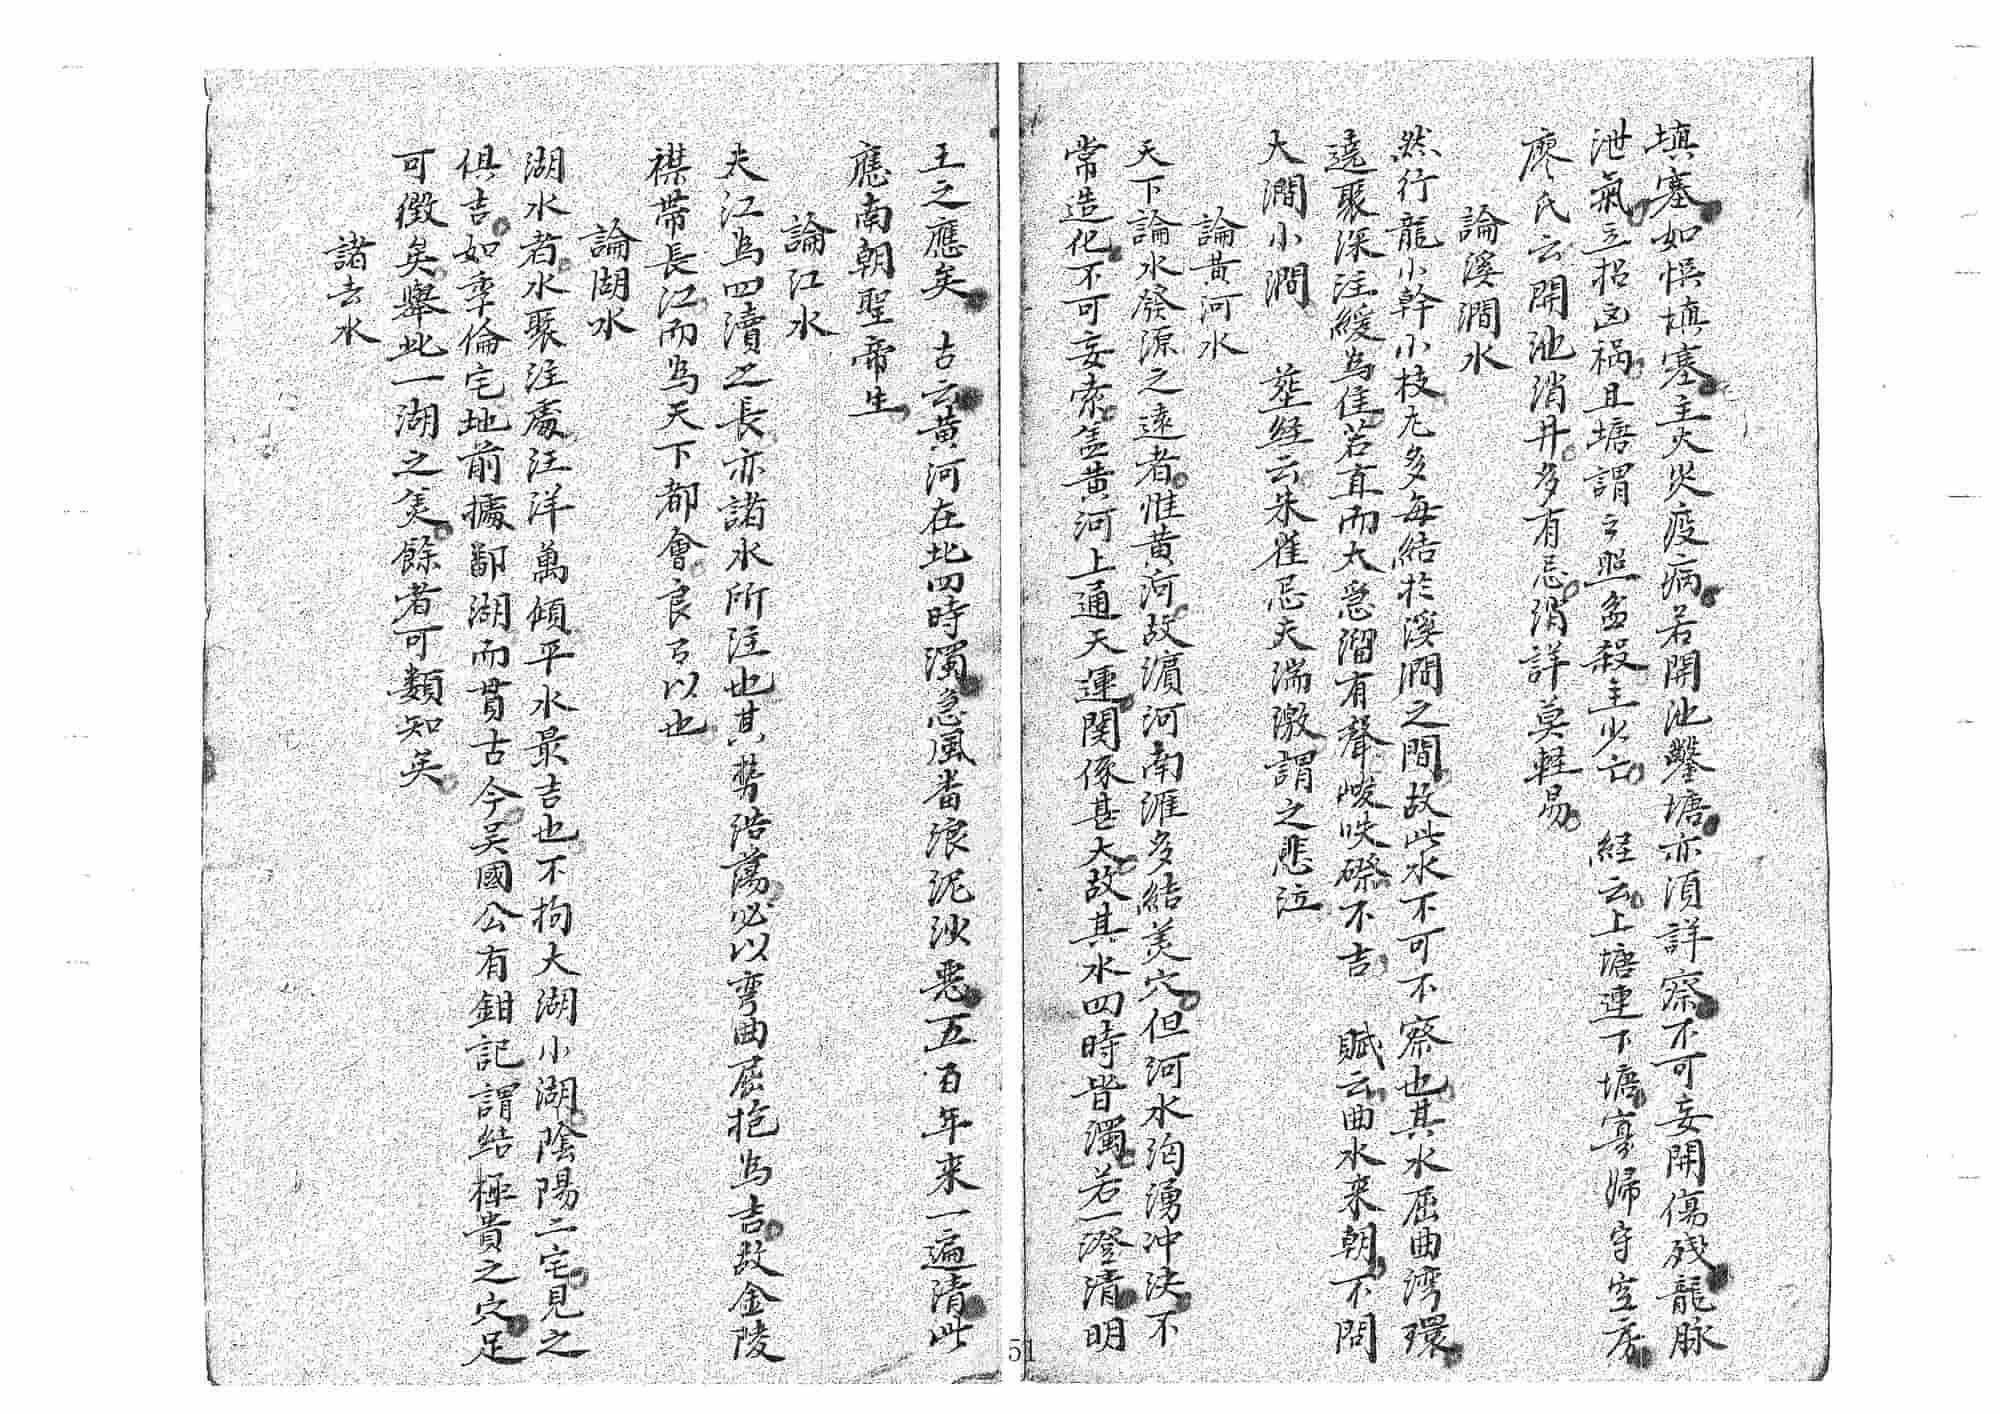 填塞如悞填塞主火災疫病若開池鑿塘亦須詳察不可妄開傷殘龍脉
泄氣立招凶禍且塘謂之照盆殺主少亡　経云上塘連下塘寡婦守空房
廖氏云開池消井多有忌消詳莫軽易
論溪澗水
然行龍小幹小枝尤多每結於溪澗之間故此水不可不察也其水屈曲湾環
遶聚深注緩為佳若直而太急溜有聲峻跌磜不吉　賦云曲水来朝不問
大澗小澗　塟経云朱雀忌夫湍激謂之悲泣
論黄河水
天下論水發源之遠者惟黄河故濵河南涯多結美穴但河水洶湧冲决不
常造化不可妄索盖黄河上通天運関係甚大故其水四時皆濁若一澄清明
王之應矣　古云黄河在北四時濁急風畨浪泥沙恶五百年来一遍清此
應南朝聖帝生
論江水
夫江為四瀆之長亦諸水所注也其势浩蕩必以弯曲屈抱為吉故金陵
襟帯長江而為天下都會良有以也
論湖水
湖水者水聚注處汪洋萬傾平水最吉也不拘大湖小湖陰陽二宅見之
俱吉如李倫宅地前據鄱湖而貫古今吴國公有鉗記謂結極貴之穴足
可徵矣舉此一湖之美餘者可類知矣
諸去水
51